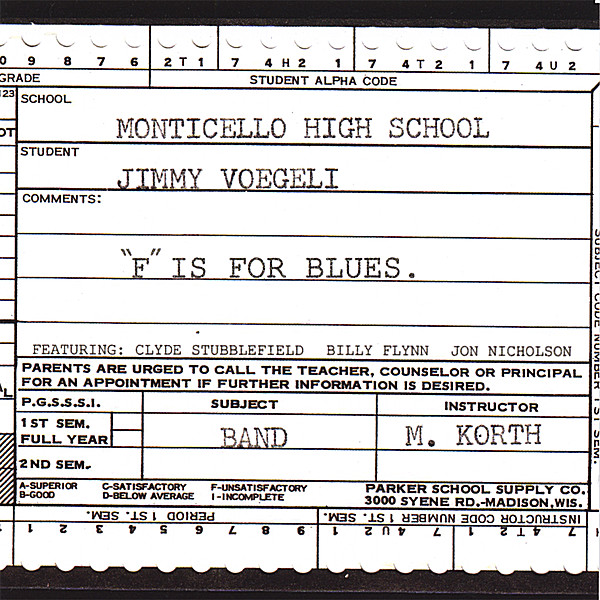 0 9 8 7 6 2 T 1 7 4 H 2 1 7 4 T 2 1 7 4 U 2
GRADE STUDENT ALPHA CODE
123
SCHOOL
MONTICELLO HIGH SCHOOL
OT
STUDENT
JIMMY VOEGELI
COMMENTS:
"F" IS FOR BLUES.
FEATURING: CLYDE STUBBLEFIELD BILLY FLYNN JON NICHOLSON
PARENTS ARE URGED TO CALL THE TEACHER, COUNSELOR OR PRINCIPAL
FOR AN APPOINTMENT IF FURTHER INFORMATION IS DESIRED.
AL
P.G.S.S.S.I. SUBJECT INSTRUCTOR
1ST SEM.
FULL YEAR BAND M. KORTH
2ND SEM.
A-SUPERIOR C-SATISFACTORY F-UNSATISFACTORY
B-GOOD D-BELOW AVERAGE I-INCOMPLETE
PARKER SCHOOL SUPPLY CO.
3000 SYENE RD.-MADISON, WIS.
SUBJECT CODE NUMBER 1 ST SEM.
PERIOD 1 ST. SEM. INSTRUCTOR CODE NUMBER 1 ST. SEM.
1 2 3 4 5 6 7 8 9 0 1 2 U 4 7 1 2 T 4 7